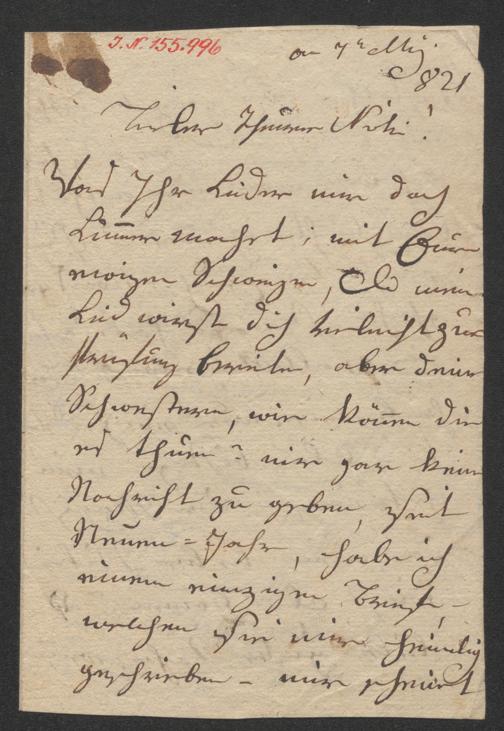 J. N. 155.996
am 7t May
821
Lieber Theurer Niki!
Was Ihr Kinder mir doch
Kummer macht; mit Eurem
ewigen Schweigen, Du mein
Kind wirst dich vieleicht zur
bereite, aber deine
Schwestern, wie könen die
es thuen? mir gar keine
Nachricht zu geben, seit
Neuen=Jahr, habe ich
einen einzigen Brief,
welchen Sie mir heimlig
geschrieben – mir scheint